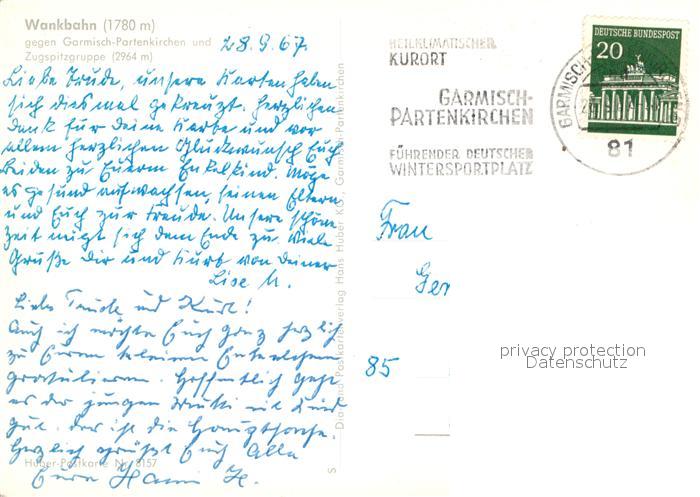 Wankbahn (1780 m)
gegen Garmisch-Partenkirchen und
Zugspitzgruppe (2964 m)
28.9.67.
Liebe Trude, unsere Karten haben
sich diesmal gekreuzt. Herzlichen
Dank für Deine Karte und vor
allem herzlichen Glückwunsch Euch
Beiden zu Euerm Enkelkind. Möge
es gesund aufwachsen, seinen Eltern
und Euch zur Freude. Unsere schöne
Zeit neigt sich dem Ende zu. Viele
Grüße Dir und Kurt von Deiner
Lise M.
Liebe Trude und Kurt!
Auch ich möchte Euch ganz herzlich
zu Eurem kleinen Enkelchen
gratulieren. Hoffentlich geht
es der jungen Mutti und Kind
gut. das ist die Hauptsache.
Herzlich grüßt Euch Alle
Eure Hanni H.
Huber-Postkarte Nr. 8157
Postkartenverlag Hans Huber KG, Garmisch-Partenkirchen
S
HEILKLIMATISCHER
KURORT
GARMISCH-
PARTENKIRCHEN
FÜHRENDER DEUTSCHER
WINTERSPORTPLATZ
DEUTSCHE BUNDESPOST
20
GARMISCH-
81
Frau
Ger
85
privacy protection
Datenschutz